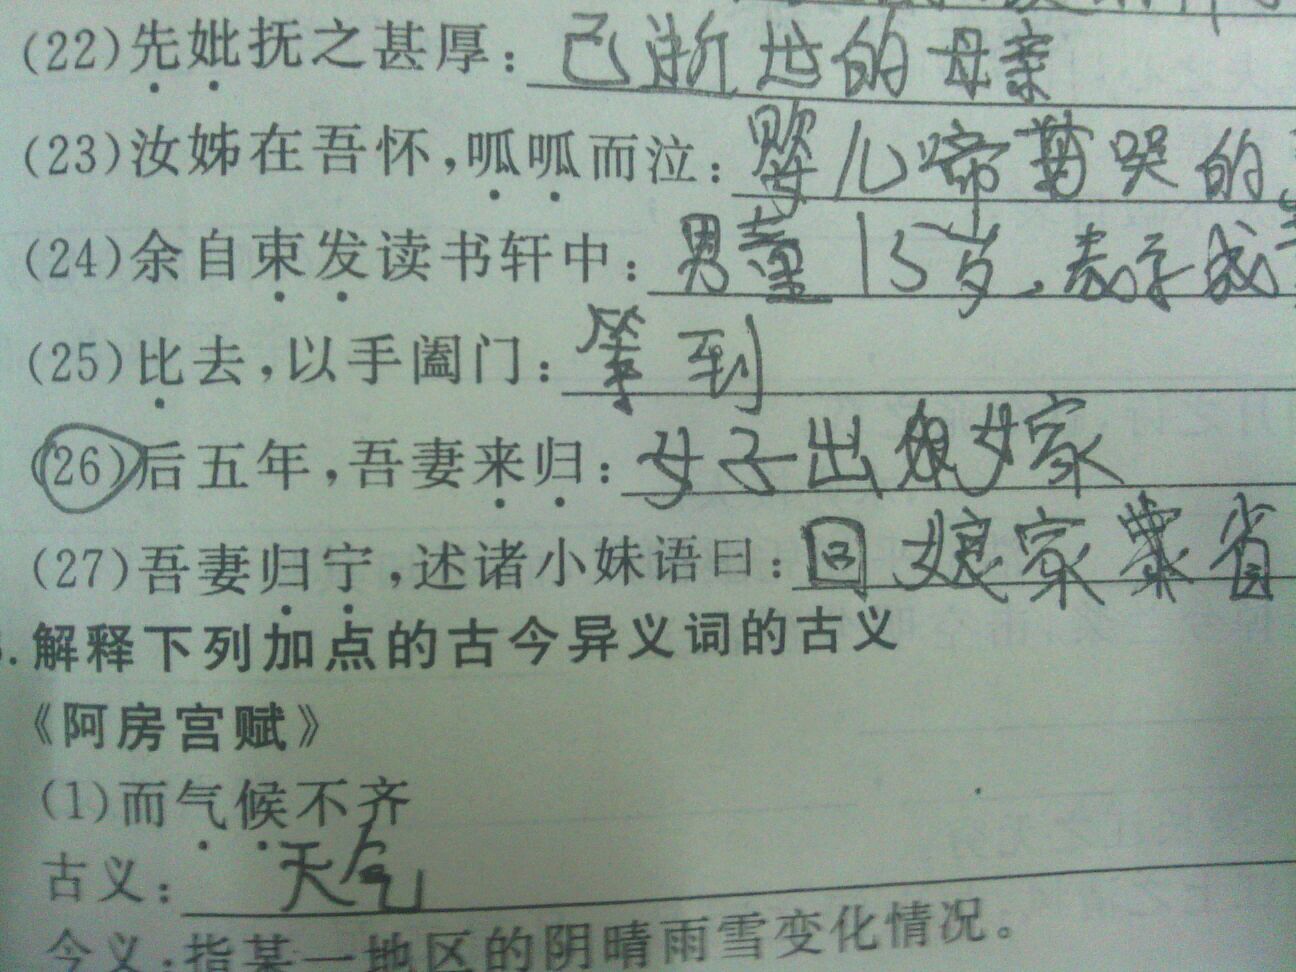 (22)先妣抚之甚厚：已逝世的母亲
(23)汝姊在吾怀，呱呱而泣：婴儿啼哭的
(24)余自束发读书轩中：男童15岁，表示成
(25)比去，以手阖门：等到
(26)后五年，吾妻来归：女子出嫁
(27)吾妻归宁，述诸小妹语曰：回娘家省
.解释下列加点的古今异义词的古义
《阿房宫赋》
(1)而气候不齐
古义：天气
今义：指某一地区的阴晴雨雪变化情况。